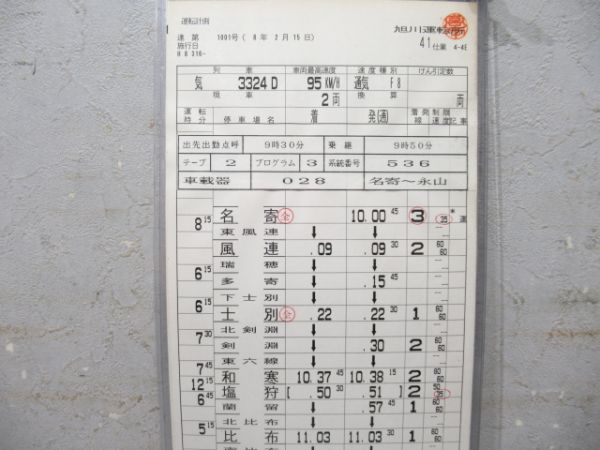 運転計画
達 第 1001号 ( 8 年 2 月 15 日)
施行日
H 8 316-
旭川運転所
41仕業 4-4E
列 車 車両最高速度 速度種別 けん引定数
気 3324D 95KM/H 通気 F8
現 車 換 算
2 両 両
運転時分 停車場名 着 発(通) 着発線 制限速度 記事
出先出勤点呼 9時30分 乗継 9時50分
テープ 2 プログラム 3 系統番号 536
車載器 028 名寄〜永山
名寄 全 10.00 45 3 35 * 運
8 15
東風連 ↓ ↓
風連 .09 .09 30 2 60 60
瑞穂 ↓ ↓
6 15
多寄 ↓ .15 45
下士別 ↓ ↓
6 15
士別 全 .22 .22 30 1 60 60
北剣淵 ↓ ↓
7 30
剣淵 ↓ .30 2 60 60
東六線 ↓ ↓
7 45
和寒 10.37 45 10.38 15 2
12 15
塩狩 [ .50 30 .51 ] 2 35
6 45
蘭留 ↓ .57 45 1 60 60
北比布 ↓ ↓
5 15
比布 11.03 11.03 30 1 60 60